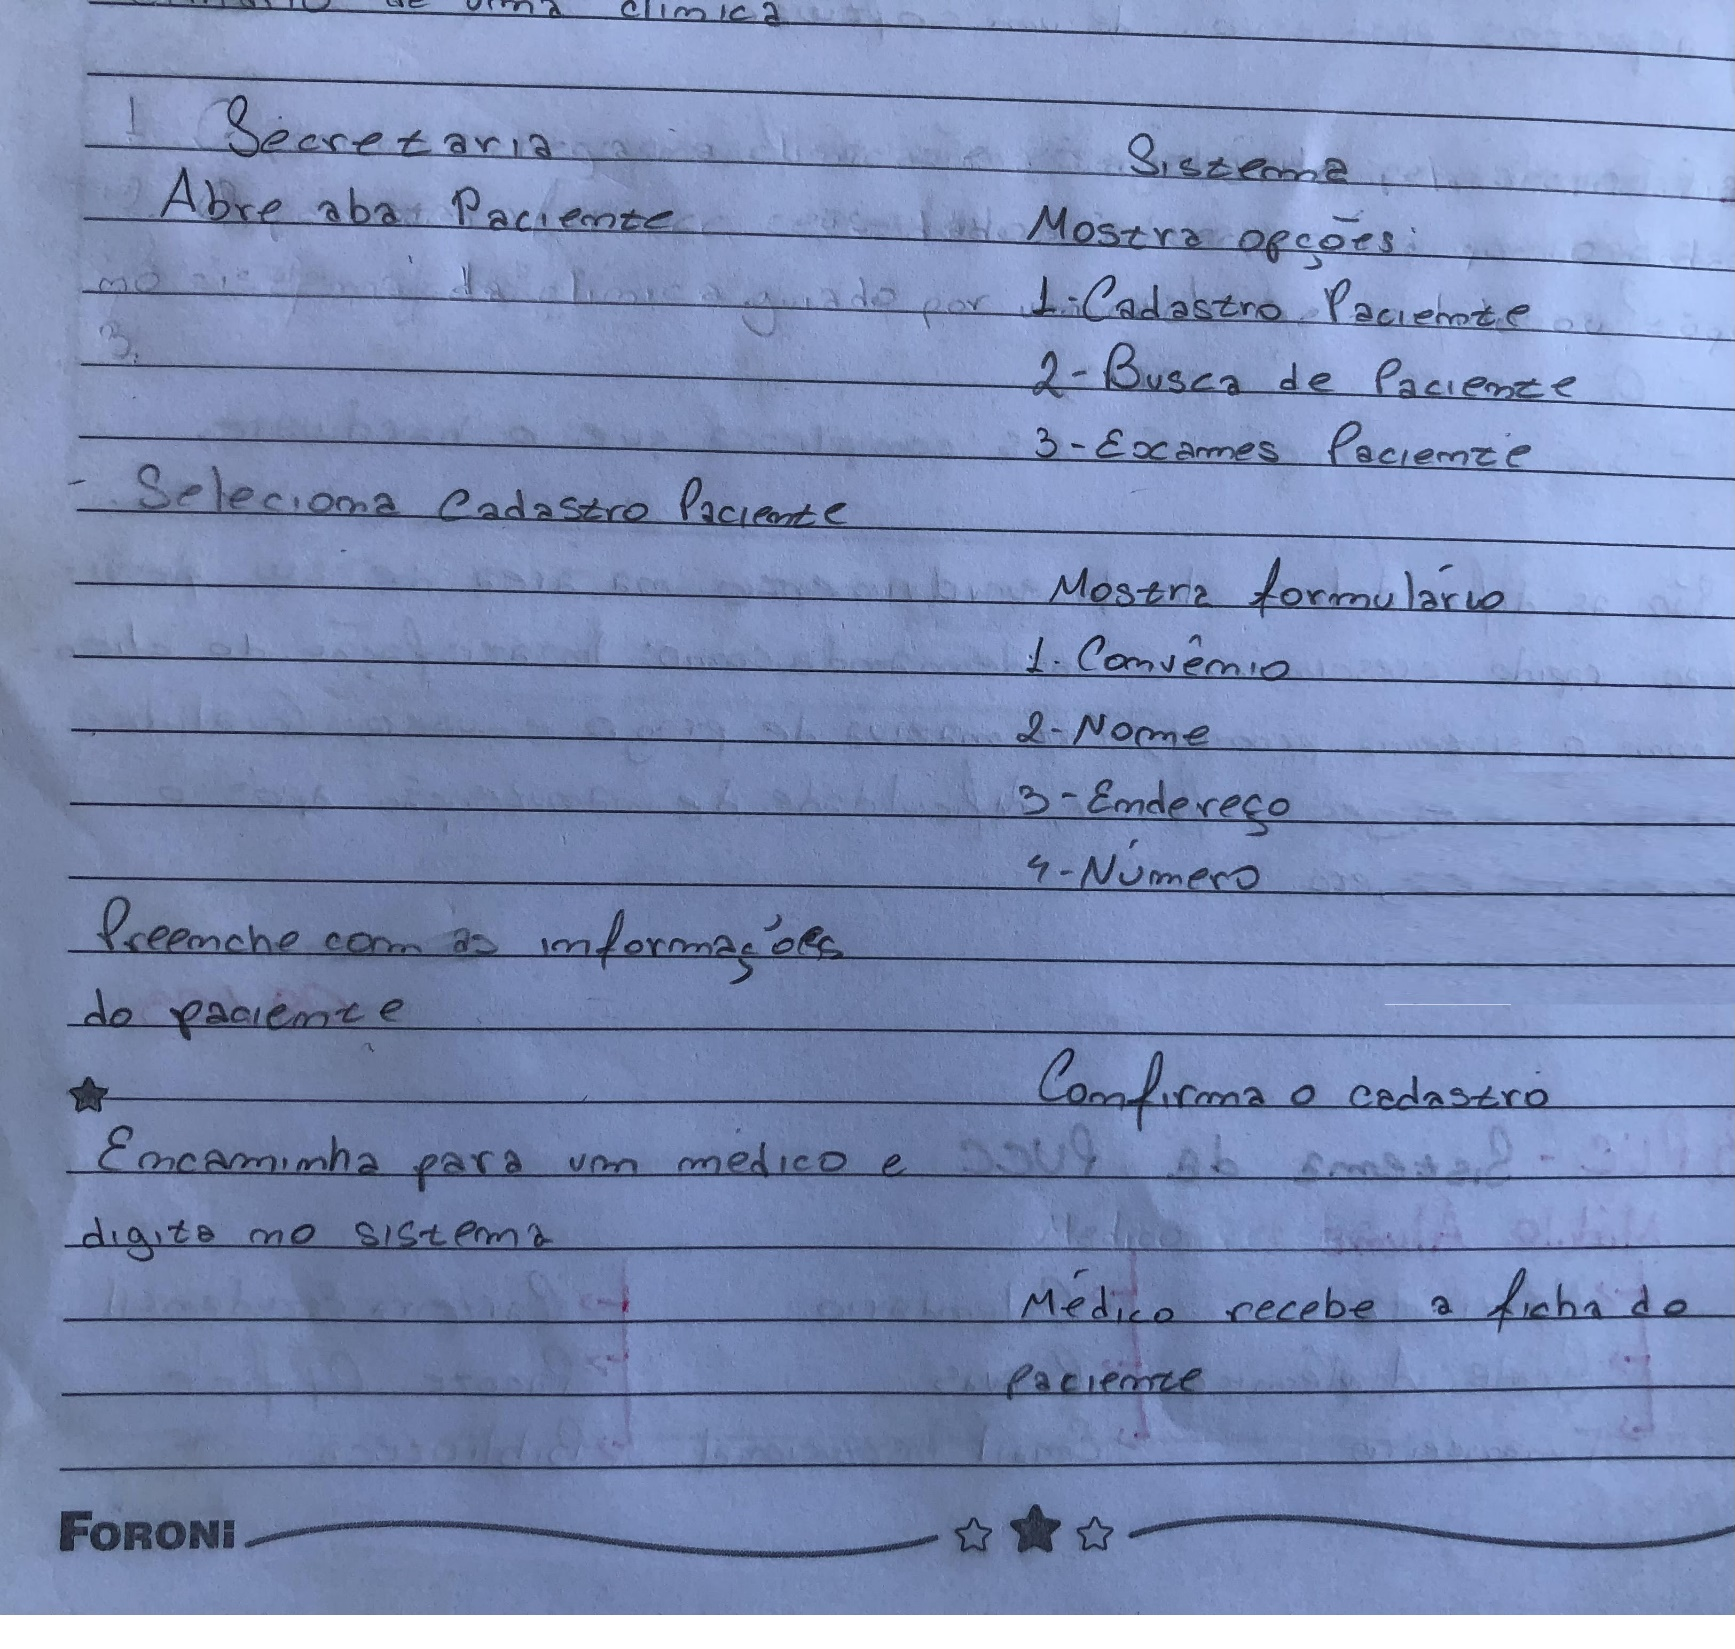 de uma clinica
Secretaria Sistema
Abre aba Paciente Mostra opções:
1-Cadastro Paciente
2-Busca de Paciente
3-Exames Paciente
- Seleciona Cadastro Paciente
Mostra formulário
1-Convênio
2-Nome
3-Endereço
4-Número
Preenche com as informações
do paciente
Confirma o cadastro
Encaminha para um médico e
digita no sistema
Médico recebe a ficha do
paciente
FORONI